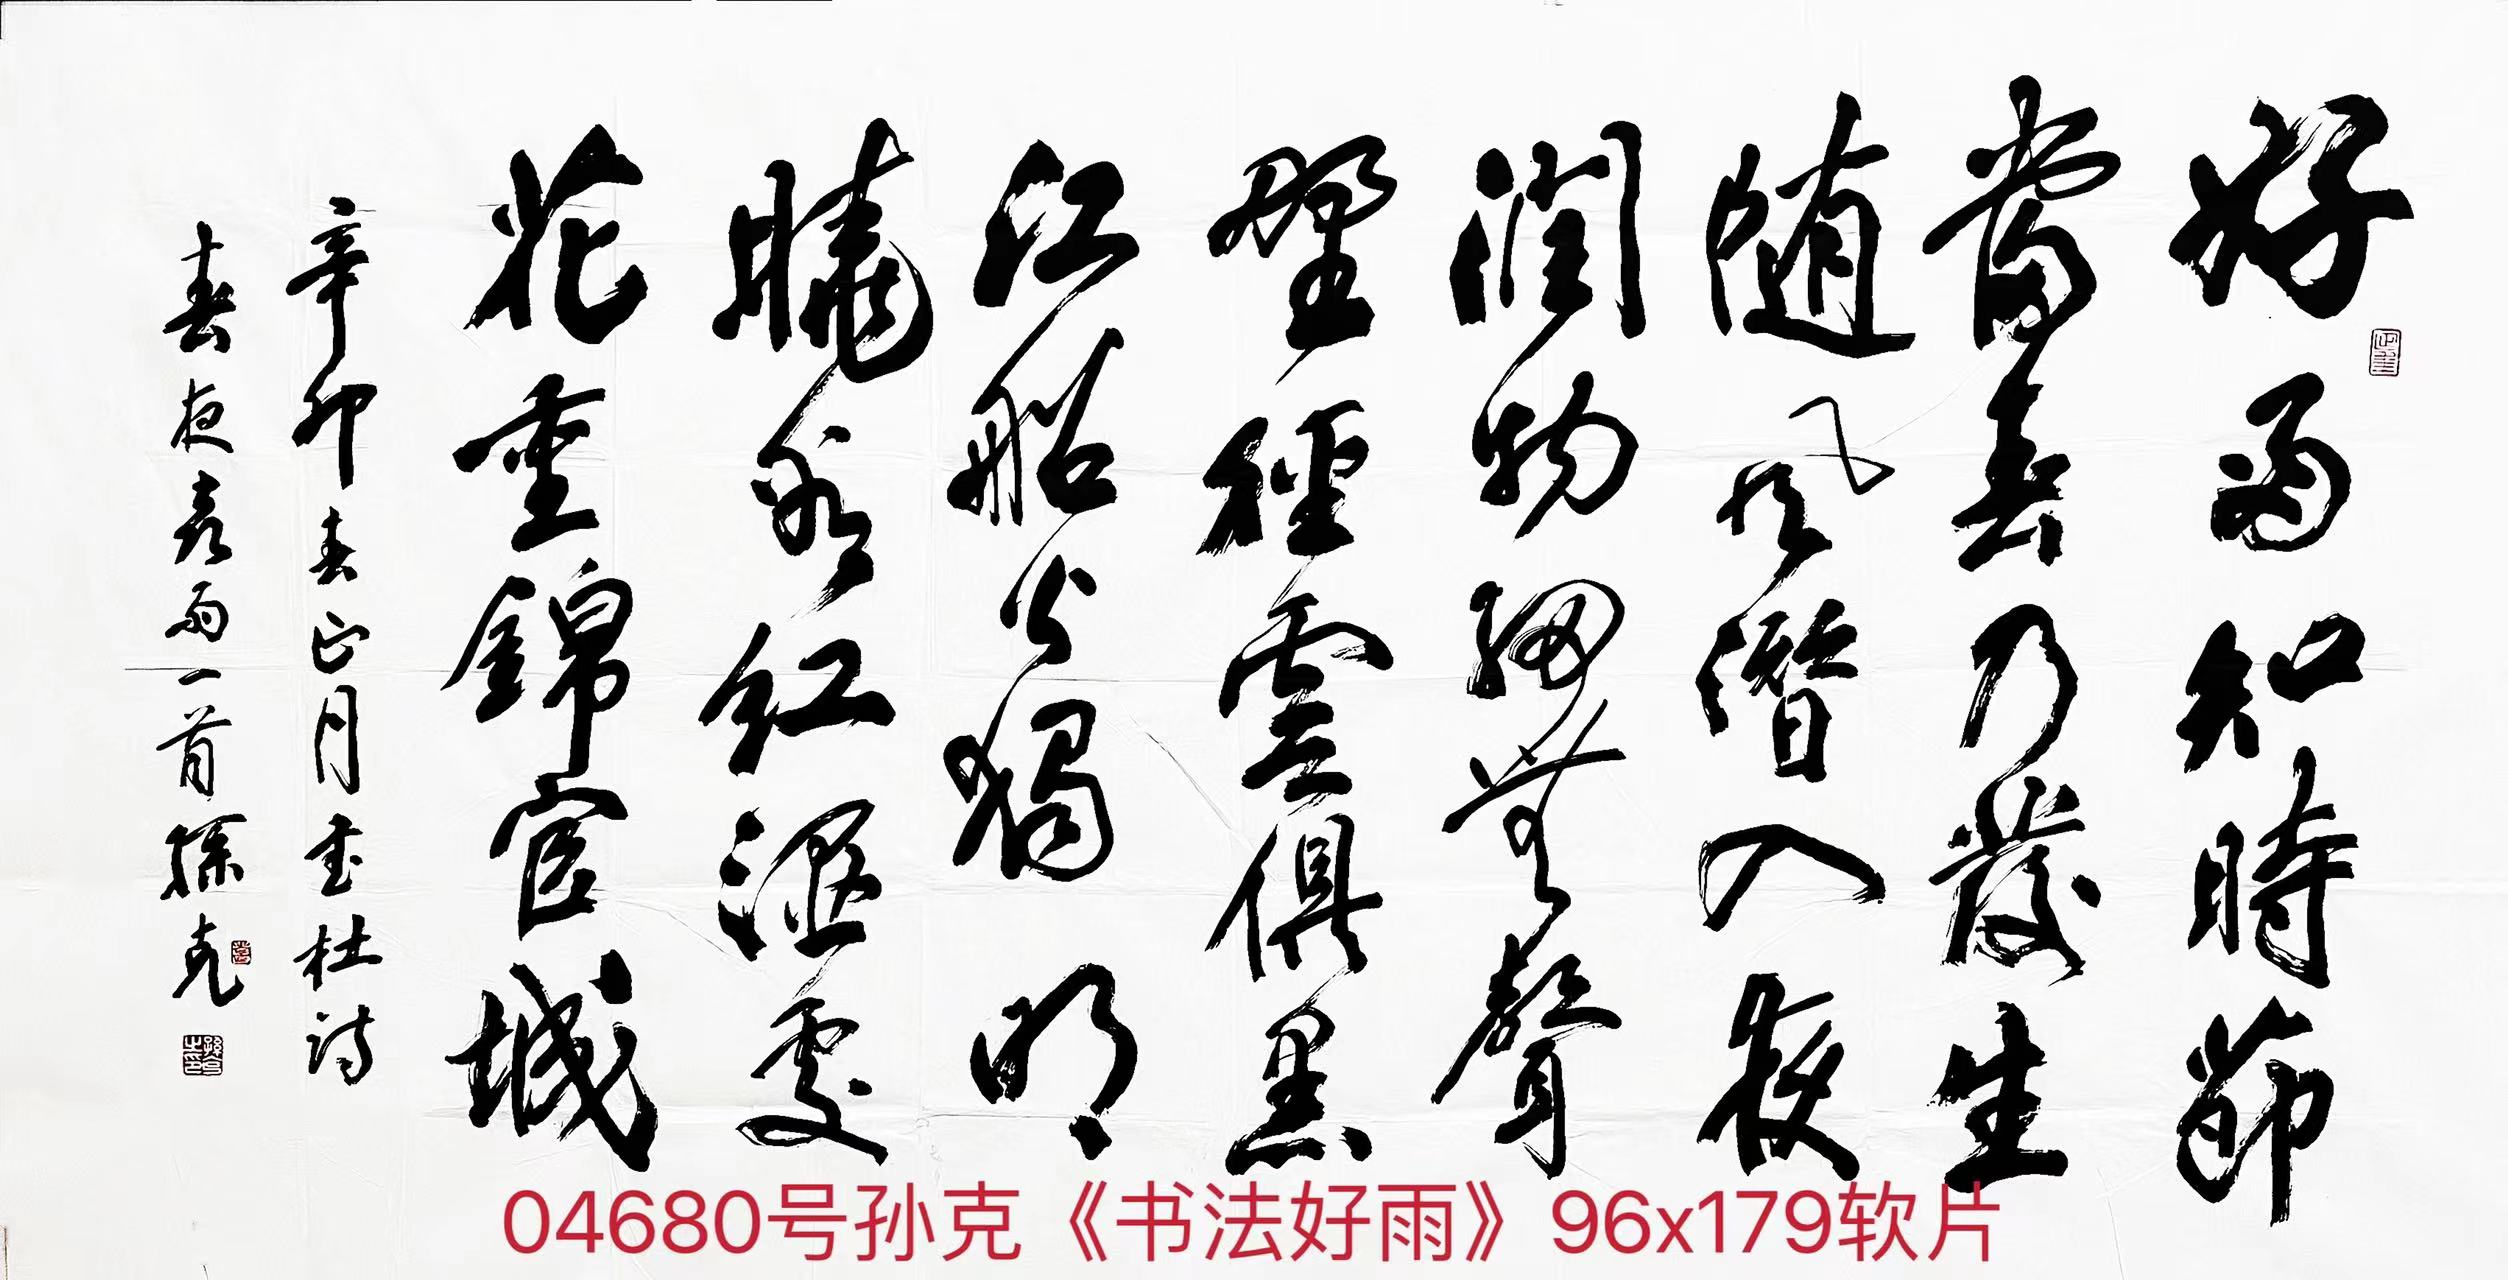 好雨知時節
當春乃發生
随風潛入夜
潤物細無聲
野徑雲俱黑
江船火獨明
曉看紅濕處
花重錦官城
辛卯春正月書杜詩
春夜喜雨一首孫克
04680号孙克《书法好雨》96x179软片